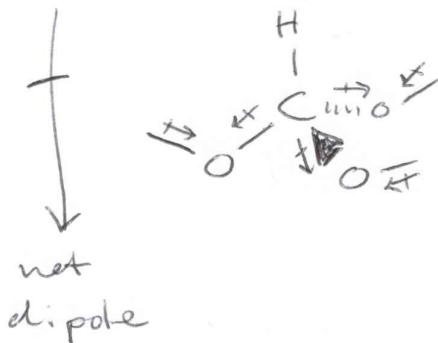 H
C O
O
O
net
dipole